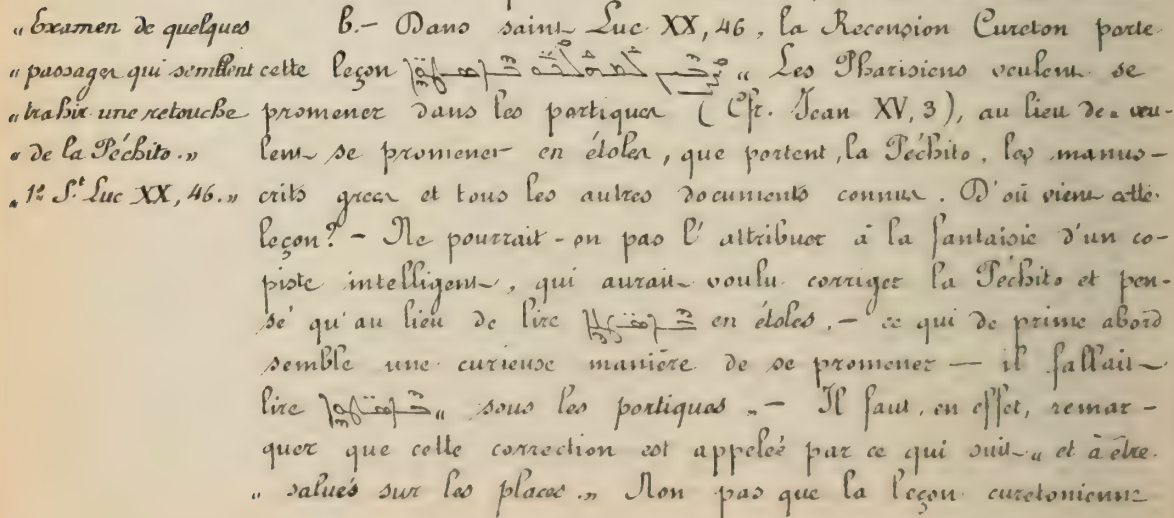 „ Examen de quelques
„ passages qui semblent
„ trahir une retouche
„ de la Péchito. „
„ 1º S.t Luc XX, 46. „
b. - Dans saint Luc XX, 46, la Recension Cureton porte
cette leçon „ Les Pharisiens veulent se
promener dans les portiques (Cfr. Jean XV, 3), au lieu de „ veu-
lent se promener en étoles, que portent, la Péchito, les manus-
crits grecs et tous les autres documents connus. D'où vient cette
leçon? - Ne pourrait-on pas l'attribuer à la fantaisie d'un co-
piste intelligent, qui aurait voulu corriger la Péchito et pen-
sé qu'au lieu de lire en étoles, - ce qui de prime abord
semble une curieuse manière de se promener - il fallait
lire „ sous les portiques „ - Il faut, en effet, remar-
quer que cette correction est appeleé par ce qui suit „ et à être
„ salués sur les places. „ Non pas que la leçon curetonienne